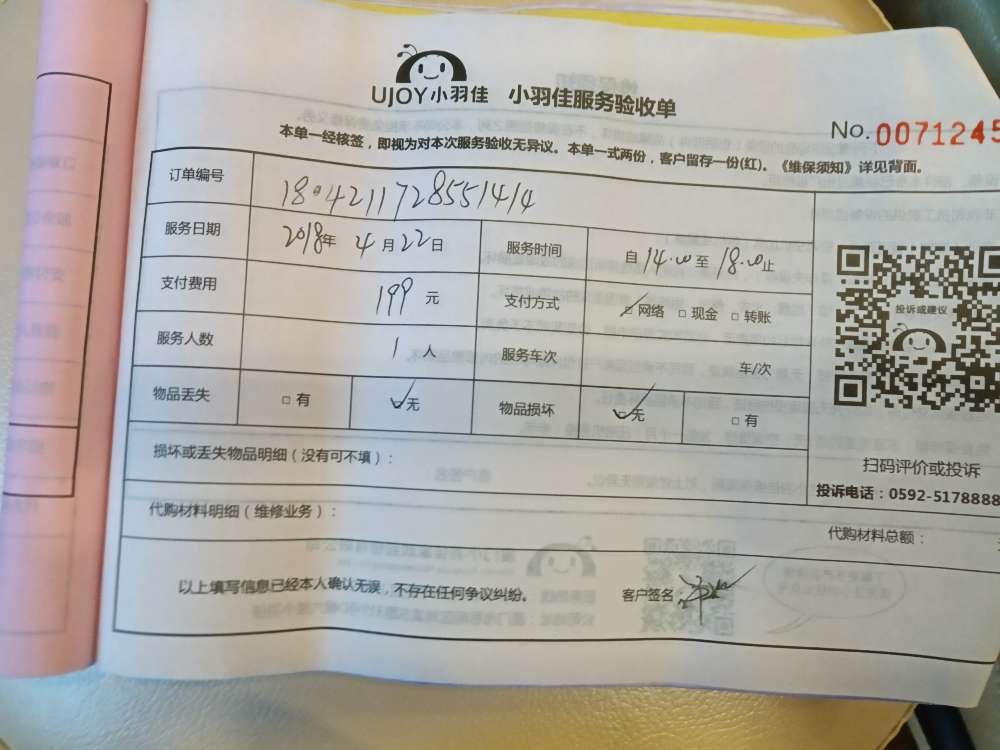 UJOY小羽佳 小羽佳服务验收单
No.0071245
本单一经核签，即视为对本次服务验收无异议。本单一式两份，客户留存一份(红)。《维保须知》详见背面。
订单编号 1804211728551414
服务日期 2018年 4月22日 服务时间 自14.00至18.00止
支付费用 199元 支付方式 □网络 □现金 □转账
服务人数 1人 服务车次 车/次
物品丢失 □有 无 物品损坏 无 □有
投诉或建议
损坏或丢失物品明细（没有可不填）：
扫码评价或投诉
投诉电话：0592-5178888
代购材料明细（维修业务）： 代购材料总额：
以上填写信息已经本人确认无误，不存在任何争议纠纷。 客户签名